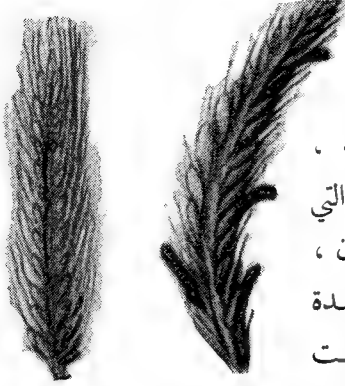 ،
التي
ن ،
ـدة
ـت